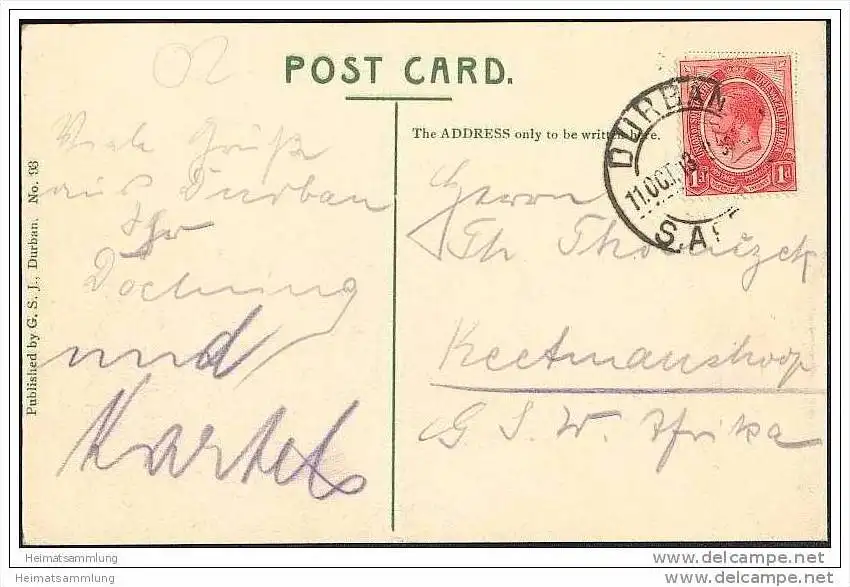 02
POST CARD.
The ADDRESS only to be written here.
DURBAN
11.OCT.13
S.AF
1D 1D
Viele Grüße
aus Durban
Ihr
und
Bartels
Herrn
Th
Keetmanshoop
G. S. W. Afrika
Published by G. S. J., Durban. No. 93
Heimatsammlung
Heimatsammlung
www.delcampe.net